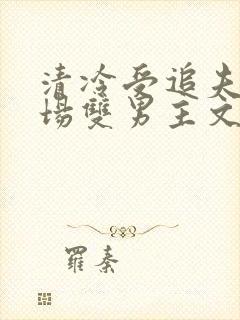 清冷受追夫
場雙男主文
羅秦